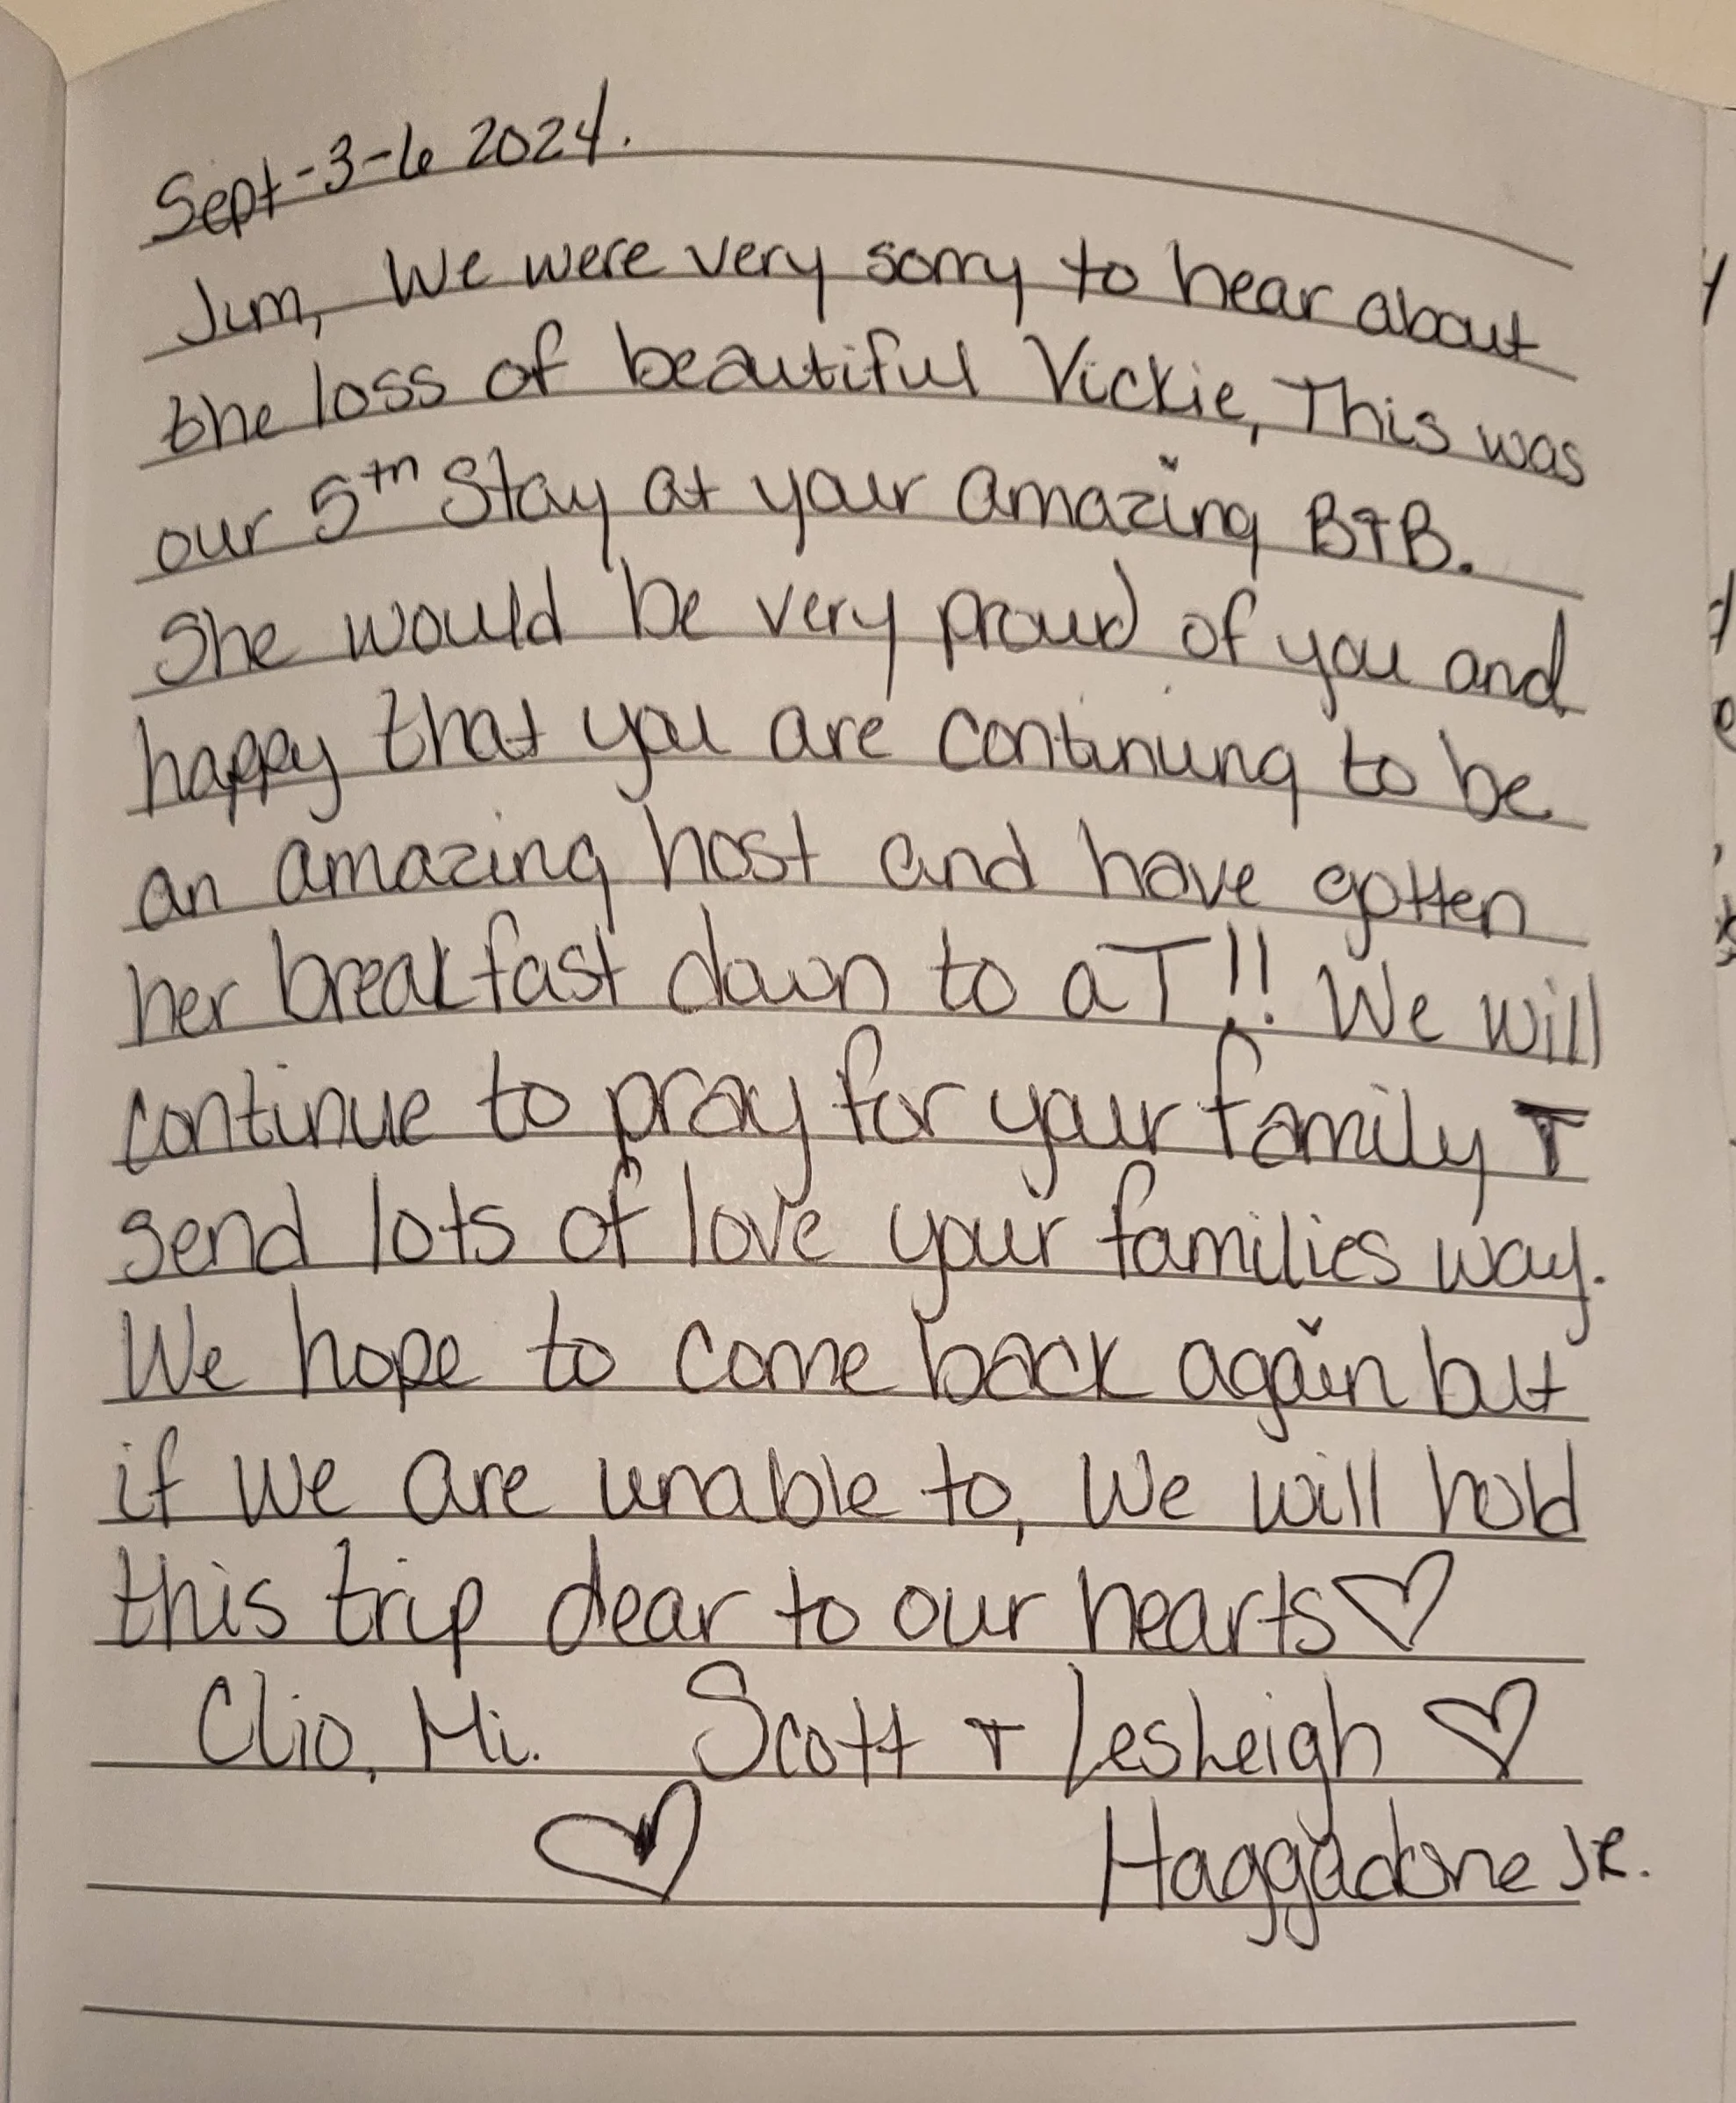 Sept-3-6 2024.
Jim, We were very sorry to hear about
the loss of beautiful Vickie, This was
our 5th Stay at your amazing B+B.
She would be very proud of you and
happy that you are continuing to be
an amazing host and have gotten
her breakfast down to a T!! We will
continue to pray for your family +
send lots of love your families way.
We hope to come back again but
if we are unable to, We will hold
this trip dear to our hearts♡
Clio, Mi. Scott + LesLeigh ♡
♡ Haggadone JR.